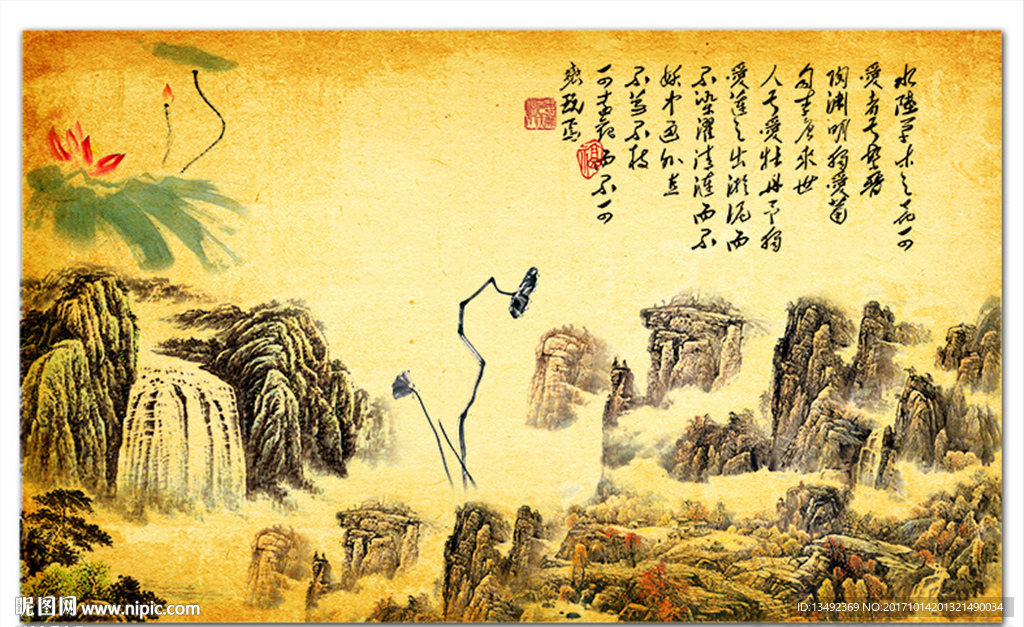 水陸草木之花可
愛者甚蕃晉
陶淵明獨愛菊
自李唐來世
人甚愛牡丹予獨
愛蓮之出淤泥而
不染濯清漣而不
妖中通外直
不蔓不枝
可遠觀而不可
褻玩焉
昵图网 www.nipic.com
ID:13492369 NO:20171014201321490034